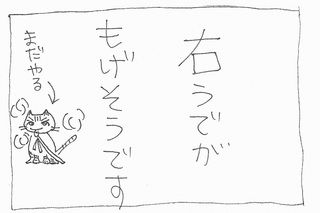 右うでが
もげそうです
まだやる